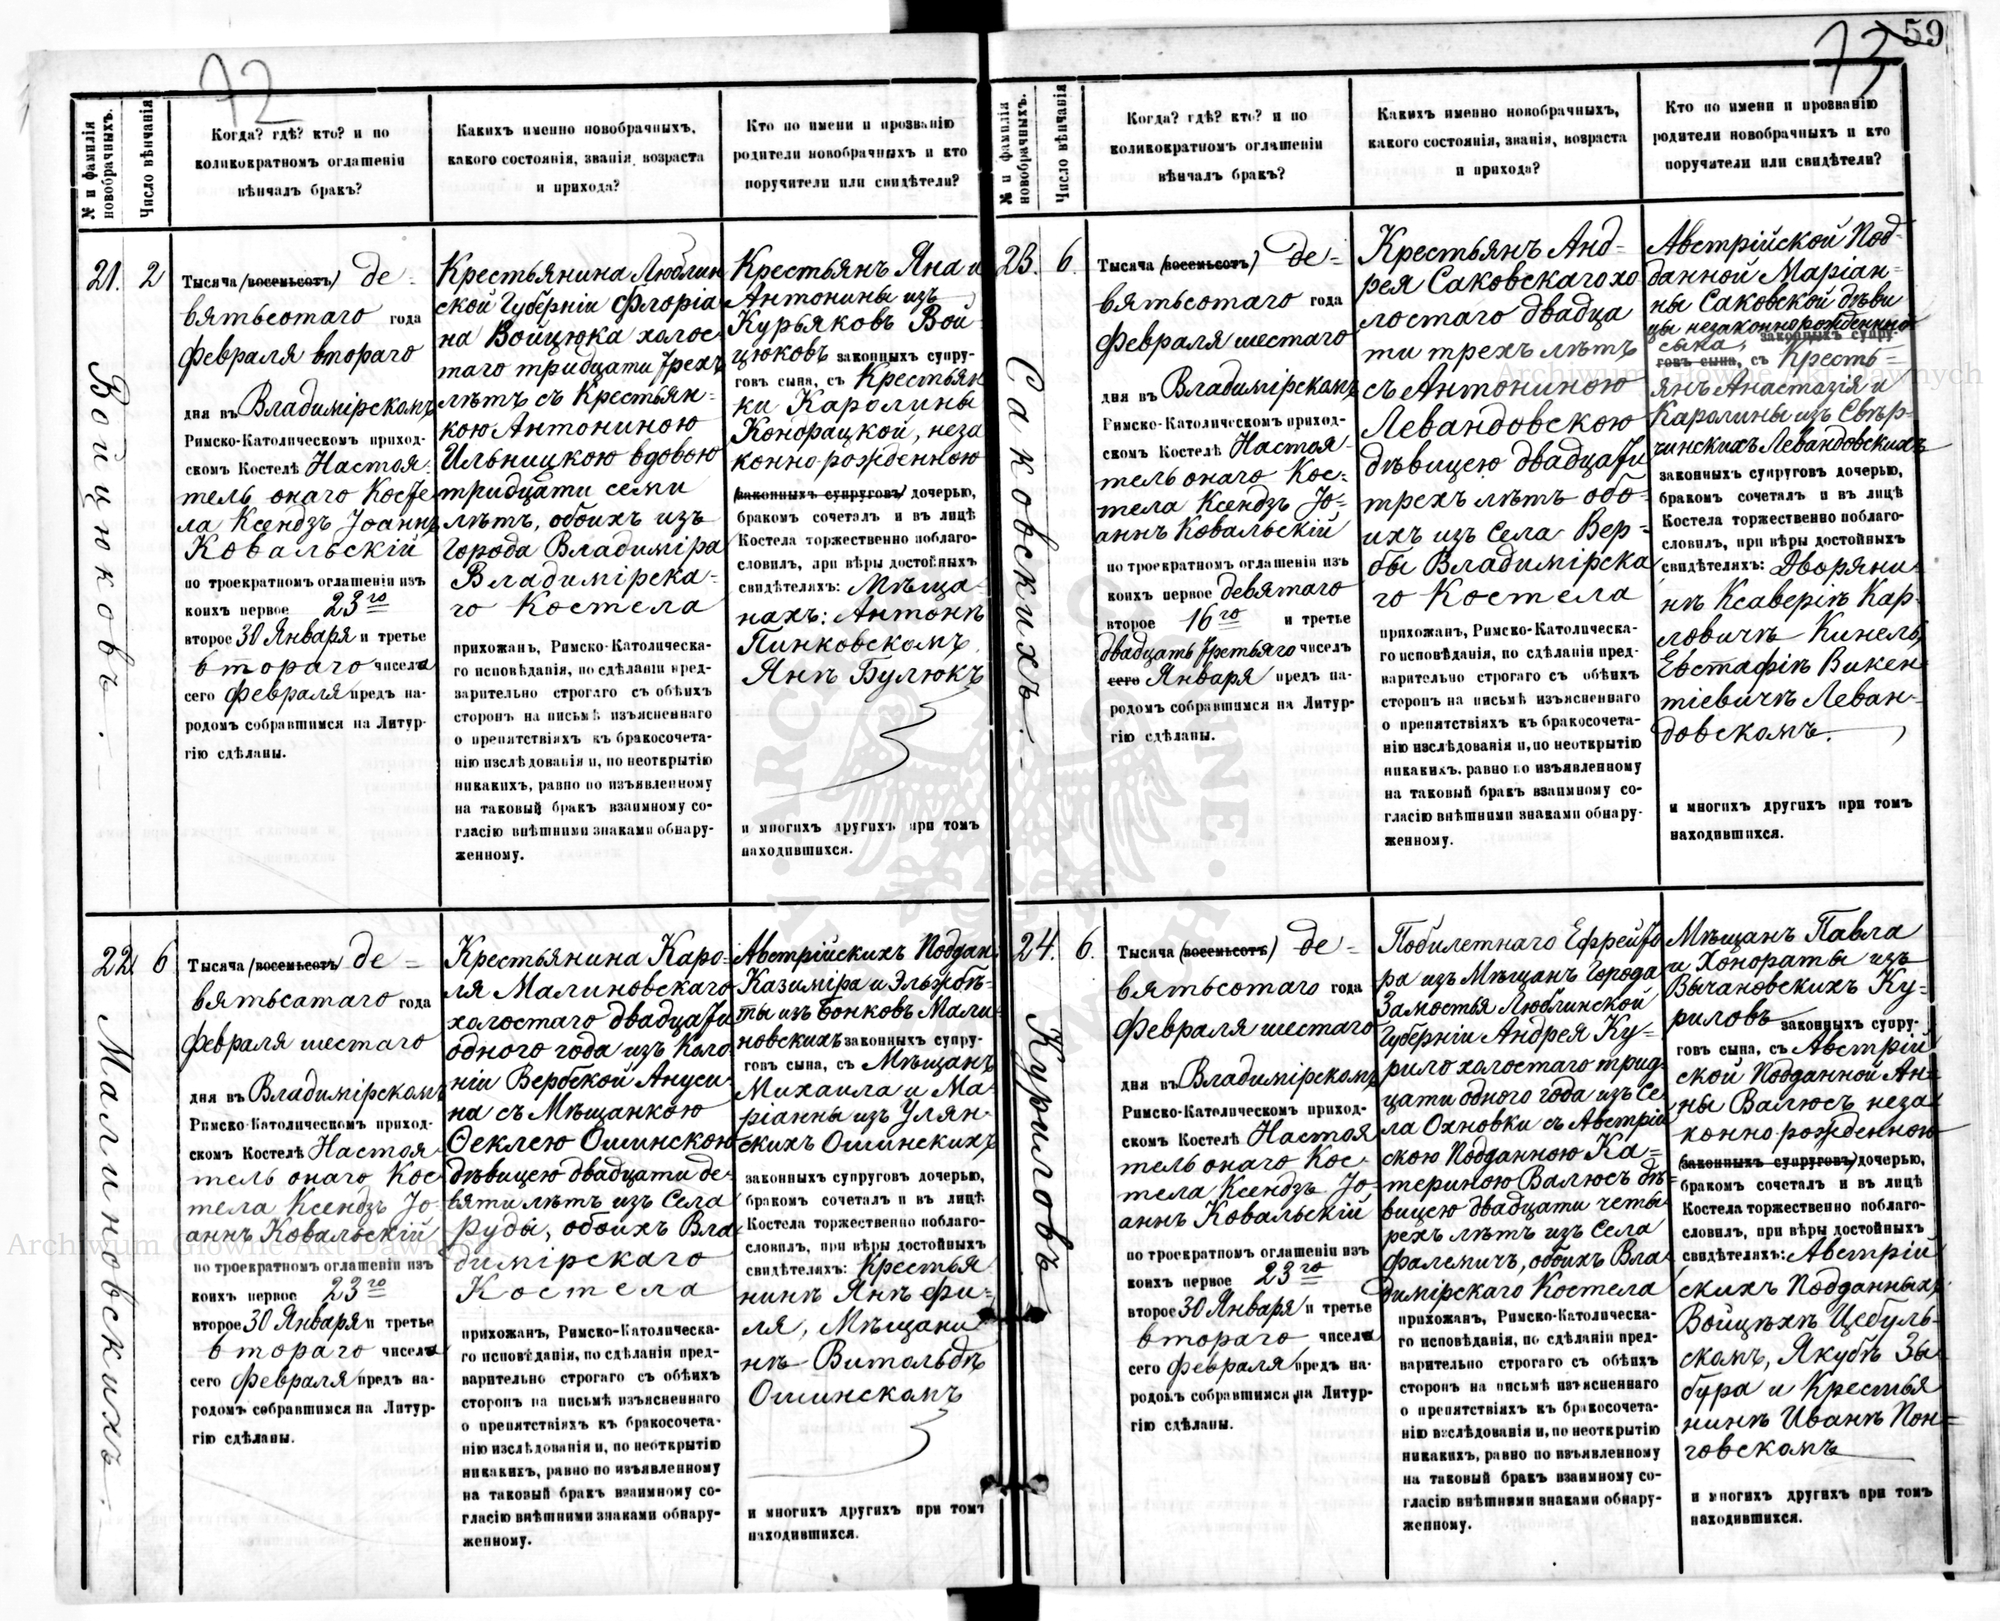 72
№ и фамилія новобрачныхъ.
Число вѣнчанія
Когда? гдѣ? кто? и по
коликократномъ оглашеніи
вѣнчалъ бракъ?
Какихъ именно новобрачныхъ,
какого состоянія, званія, возраста
и прихода?
Кто по имени и прозванію
родители новобрачныхъ и кто
поручители или свидѣтели?
21.
Войцюковъ.
2
Тысяча (восемьсотъ) де-
вятьсотаго года
Февраля втораго
дня въ Владимірскомъ
Римско-Католическомъ приход-
скомъ Костелѣ Настоя-
тель онаго Косте
ла Ксендзъ Іоаннъ
Ковальскій
по троекратномъ оглашеніи изъ
коихъ первое 23го
второе 30 Января и третье
втораго чисела
сего Февраля предъ на-
родомъ собравшимся на Литур-
гію сдѣланы.
Крестьянина Люблин
ской Губерніи Флоріа
на Войцюка холос-
таго тридцати трехъ
лѣтъ съ Крестьян-
кою Антониною
Ильницкою вдовою
тридцати семи
лѣтъ, обоихъ изъ
Города Владиміра
Владимірска-
го Костела
прихожан, Римско-Католическа-
го исповѣданія, по сдѣланіи пред-
варительно строгаго съ обѣихъ
сторон на письмѣ изъясненнаго
о препятствіяхъ къ бракосочета-
нію изслѣдованія и, по неоткрытію
никакихъ, равно по изъявленному
на таковый бракъ взаимному со-
гласію внѣшними знаками обнару-
женному.
Крестьянъ Яна и
Антонины изъ
Курьяковъ Вой-
цюковъ законныхъ супру-
говъ сына, съ Крестьян
ки Каролины
Конорацкой, неза
коннорожденною
(законныхъ супруговъ) дочерью,
бракомъ сочеталъ и въ лицѣ
Костела торжественно поблаго-
словилъ, при вѣры достойныхъ
свидѣтеляхъ: Мѣща-
нахъ: Антонѣ
Пинковскомъ,
Янѣ Булюкъ
и многихъ другихъ при томъ
находившихся.
22.
Малиновскихъ.
6
Тысяча (восемьсотъ) де-
вятьсотаго года
Февраля шестаго
дня въ Владимірскомъ
Римско-Католическомъ приход-
скомъ Костелѣ Настоя-
тель онаго Кос-
тела Ксендзъ Іо-
аннъ Ковальскій
по троекратномъ оглашеніи изъ
коихъ первое 23го
второе 30 Января и третье
втораго чисела
сего Февраля предъ на-
родомъ собравшимся на Литур-
гію сдѣланы.
Крестьянина Каро-
ля Малиновскаго
холостаго двадцати
одного года изъ Коло-
ніи Вербской Ануси-
на съ Мѣщанкою
Ѳеклею Ошинскою
дѣвицею двадцати де-
вяти лѣтъ изъ Села
Руды, обоихъ Вла
димірскаго
Костела
прихожан, Римско-Католическа-
го исповѣданія, по сдѣланіи пред-
варительно строгаго съ обѣихъ
сторонъ на письмѣ изъясненнаго
о препятствіяхъ къ бракосочета-
нію изслѣдованія и, по неоткрытію
никакихъ, равно по изъявленному
на таковый бракъ взаимному со-
гласію внѣшними знаками обнару-
женному.
Австрійскихъ Поддан
Казиміра и Эльжбѣ-
ты изъ Бонковъ Мали-
новскихъ законныхъ супру-
говъ сына, съ Мѣщанъ
Михаила и Ма-
ріанны изъ Улян-
скихъ Ошинскихъ
законныхъ супруговъ дочерью,
бракомъ сочеталъ и въ лицѣ
Костела торжественно поблаго-
словилъ, при вѣры достойныхъ
свидѣтеляхъ: Крестья
нинѣ Янѣ Фи-
ля, Мѣщани
нѣ Витольдѣ
Ошинскомъ
и многихъ другихъ при томъ
находившихся.
59
73
№ и фамилія новобрачныхъ.
Число вѣнчанія
Когда? гдѣ? кто? и по
коликократномъ оглашеніи
вѣнчалъ бракъ?
Какихъ именно новобрачныхъ,
какого состоянія, званія, возраста
и прихода?
Кто по имени и прозванію
родители новобрачныхъ и кто
поручители или свидѣтели?
23.
Саковскихъ.
6.
Тысяча (восемьсотъ) де-
вятьсотаго года
Февраля шестаго
дня въ Владимірскомъ
Римско-Католическомъ приход-
скомъ Костелѣ Настоя-
тель онаго Кос-
тела Ксендзъ Іо-
аннъ Ковальскій
по троекратномъ оглашеніи изъ
коихъ первое девятаго
второе 16го и третье
двадцать третьяго чиселъ
сего Января предъ на-
родомъ собравшимся на Литур-
гію сдѣланы.
Крестьянъ Анд-
рея Саковскаго хо
лостаго двадца
ти трехъ лѣтъ
съ Антониною
Левандовскою
дѣвицею двадцати
трехъ лѣтъ обо-
ихъ изъ Села Вер-
бы Владимірска
го Костела
прихожан, Римско-Католическа-
го исповѣданія, по сдѣланіи пред-
варительно строгаго съ обѣихъ
сторон на письмѣ изъясненнаго
о препятствіяхъ къ бракосочета-
нію изслѣдованія и, по неоткрытію
никакихъ, равно по изъявленному
на таковый бракъ взаимному со-
гласію внѣшними знаками обнару-
женному.
Австрійской Под-
данной Маріан-
ны Саковской дѣви
цы незаконнорожденного
сына, законныхъ супру-
говъ сына, съ Кресть-
янъ Анастазія и
Каролины изъ Свѣр-
чинскихъ Левандовскихъ
законныхъ супруговъ дочерью,
бракомъ сочеталъ и въ лицѣ
Костела торжественно поблаго-
словилъ, при вѣры достойныхъ
свидѣтеляхъ: Дворяни-
нѣ Ксаверіѣ Кар-
ловичѣ Кинель,
Евстафіѣ Викен
тіевичѣ Леван-
довскомъ.
и многихъ другихъ при томъ
находившихся.
24.
Куриловъ
6.
Тысяча (восемьсотъ) де-
вятьсотаго года
Февраля шестаго
дня въ Владимірскомъ
Римско-Католическомъ приход-
скомъ Костелѣ Настоя
тель онаго Кос-
тела Ксендзъ Іо-
аннъ Ковальскій
по троекратномъ оглашеніи изъ
коихъ первое 23го
второе 30 Января и третье
втораго чисела
сего Февраля предъ на-
родомъ собравшимся на Литур-
гію сдѣланы.
Побилетнаго Ефрейто
ра изъ Мѣщанъ Города
Замостья Люблинской
Губерніи Андрея Ку-
рило холостаго трид-
цати одного года изъ Се
ла Охновки съ Австрій
скою Подданною Ка-
териною Валюсъ дѣ-
вицею двадцати четы
рехъ лѣтъ изъ Села
Фалемичъ, обоихъ Вла
димірскаго Костела
прихожан, Римско-Католическа-
го исповѣданія, по сдѣланіи пред-
варительно строгаго съ обѣихъ
сторонъ на письмѣ изъясненнаго
о препятствіяхъ къ бракосочета-
нію изслѣдованія и, по неоткрытію
никакихъ, равно по изъявленному
на таковый бракъ взаимному со-
гласію внѣшними знаками обнару-
женному.
Мѣщанъ Павла
и Хонораты изъ
Вычановскихъ Ку-
риловъ законныхъ супру-
говъ сына, съ Австрій
ской Подданной Ан-
ны Валюсъ неза-
коннорожденною
(законныхъ супруговъ) дочерью,
бракомъ сочеталъ и въ лицѣ
Костела торжественно поблаго-
словилъ, при вѣры достойныхъ
свидѣтеляхъ: Австрій
скихъ Подданныхъ
Войцѣхѣ Цебуль-
скомъ, Якубѣ Зы
бура и Крестья
нинѣ Иванѣ Пон-
говскомъ
и многихъ другихъ при томъ
находившихся.
Archiwum Główne Akt Dawnych
Archiwum Główne Akt Dawnych